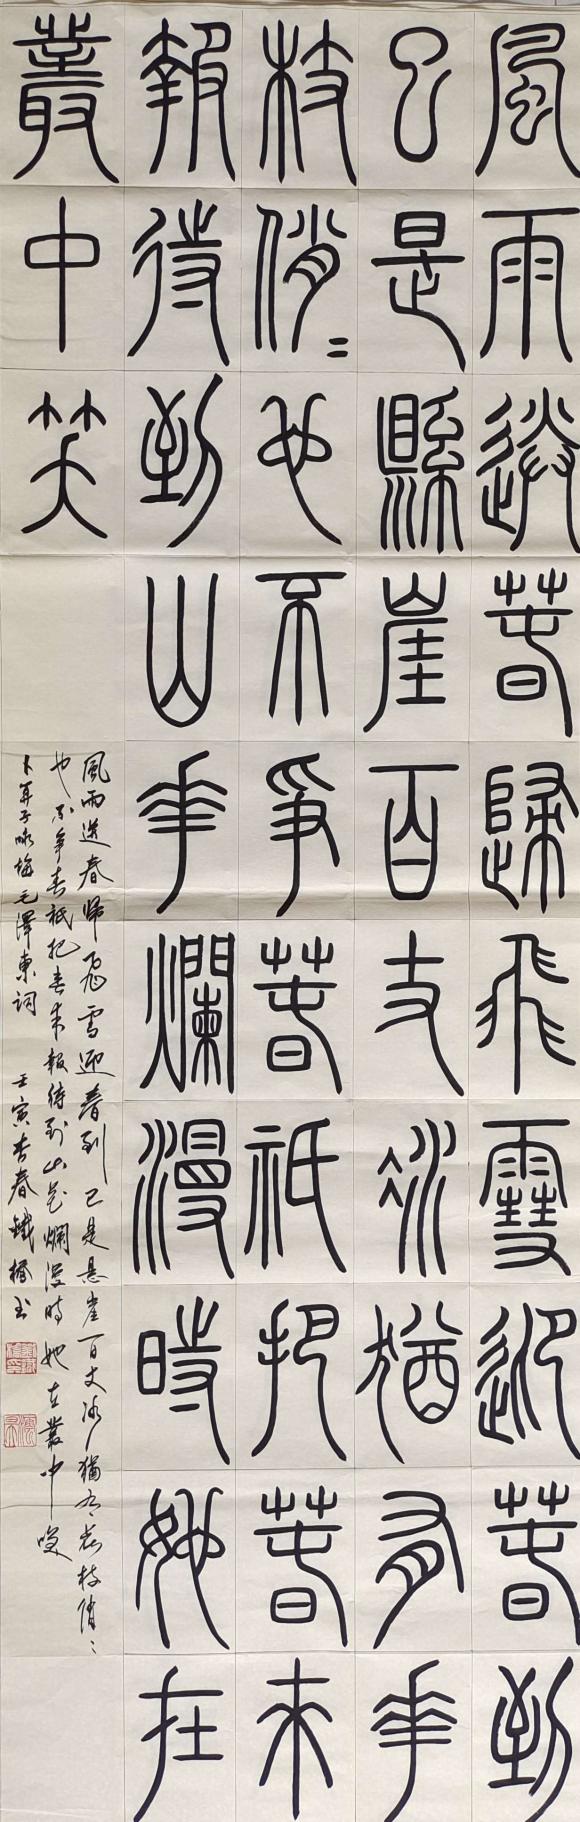 風雨送春歸飛雪迎春到
已是縣崖百丈冰猶有華
枝俏〻也不爭春祇把春來
報待到山華爛漫時她在
叢中笑
風雨送春歸飛雪迎春到已是懸崖百丈冰猶有花枝俏〻
也不爭春祇把春來報待到山花爛漫時她在叢中笑
卜算子咏梅毛澤東詞 壬寅季春鐵樁书